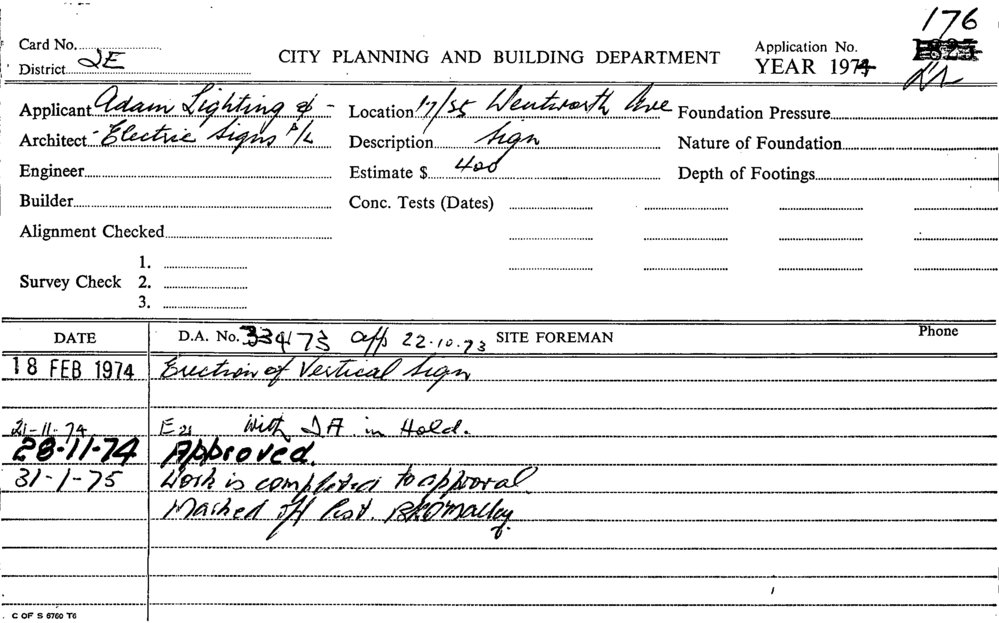 176
Card No.
District 2E
CITY PLANNING AND BUILDING DEPARTMENT
Application No.
YEAR 1974
Applicant Adam Lighting & -
Location 17/35 Wentworth Ave
Foundation Pressure
Architect - Electric Signs P/L
Description Sign
Nature of Foundation
Engineer
Estimate $ 400
Depth of Footings
Builder
Conc. Tests (Dates)
Alignment Checked
Survey Check
1.
2.
3.
DATE
D.A. No. 334/73 app 22.10.73 SITE FOREMAN
Phone
18 FEB 1974 Erection of Vertical Sign
21-11-74 with DA in Hold.
28-11-74 Approved.
31-1-75 Work is completed to approval.
Marked off List. BKOMalley
C OF S 6760 T6